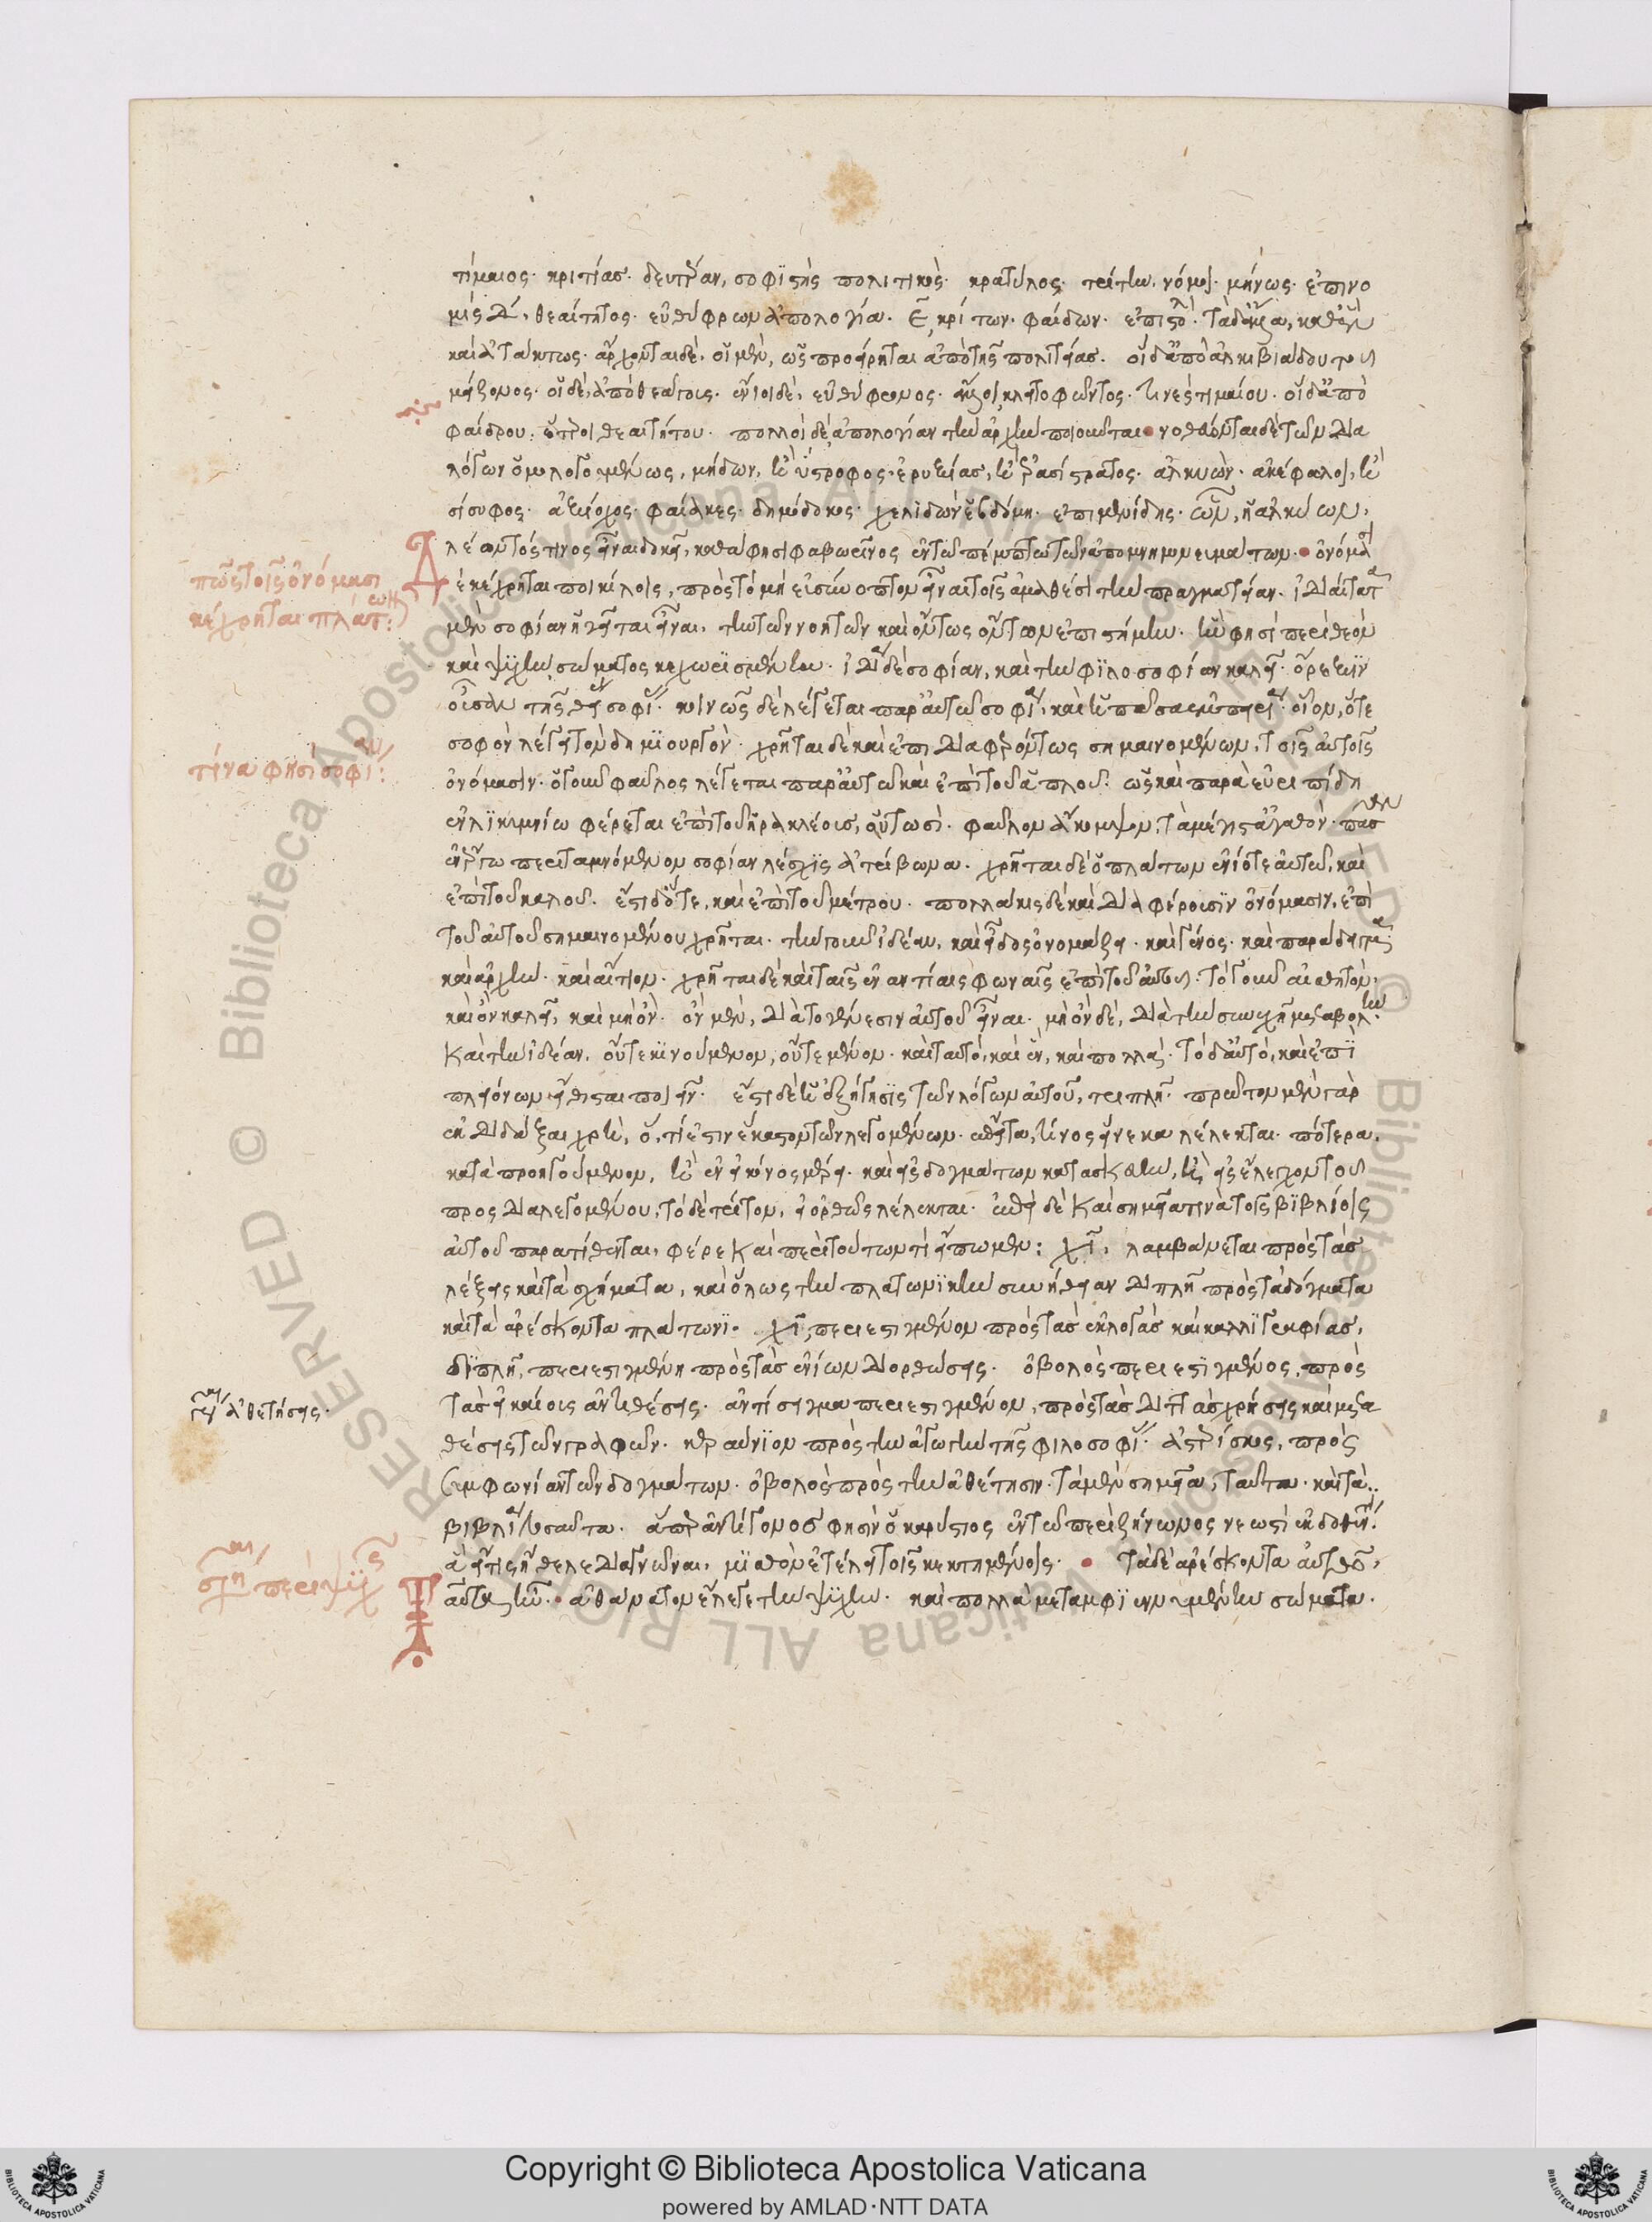 τίμαιος· κριτίας· δευτέραν, σοφιστὴς πολιτικὸς· κρατύλος· τρίτην, νόμοι· μίνως· ἐπινο
μίς Δ, θεαίτητος· εὐθύφρων ἀπολογία· Ε, κρίτων· φαίδων· ἐπιστολαὶ· τὰ δ' ἄλλα, καθ' ἓν
καὶ ἀτάκτως· ἄρχονται δὲ, οἱ μὲν, ὡς προείρηται ἀπὸ τῆς πολιτείας· οἱ δ' ἀπὸ ἀλκιβιάδου τοῦ
μείζονος· οἱ δὲ, ἀπὸ θεάγους· ἔνιοι δὲ, εὐθύφρονος· ἄλλοι κλειτοφῶντος· τινὲς τιμαίου· οἱ δ' ἀπὸ
φαίδρου· ἕτεροι θεαιτήτου· πολλοὶ δὲ ἀπολογίαν τὴν ἀρχὴν ποιοῦνται· νοθεύονται δὲ τῶν δια
λόγων ὁμολογουμένως, μίδων, ἢ ἱπποτρόφος· ἐρυξίας, ἢ ἐρασίστρατος· ἀλκυὼν· ἀκέφαλοι, ἢ
σίσυφος· ἀξίοχος· φαίακες· δημόδοκος· χελιδὼν· ἑβδόμη· ἐπιμενίδης· ὧν, ἡ ἀλκυὼν,
λέοντός τινος εἶναι δοκεῖ, καθά φησι φαβωρῖνος ἐν τῷ πέμπτῳ τῶν ἀπομνημονευμάτων· ὀνόμασι
πῶς τοῖς ὀνόμασι
δὲ κέχρηται ποικίλοις, πρὸς τὸ μὴ εὐσύνοπτον εἶναι τοῖς ἀμαθέσι τὴν πραγματείαν· ἰδιαίτατα
κέχρηται πλάτων:
μὲν σοφίαν ἡγεῖται εἶναι, τὴν τῶν νοητῶν καὶ ὄντως ὄντων ἐπιστήμην· ἥν φησι περὶ θεὸν
καὶ ψυχὴν σώματος κεχωρισμένην· ἰδίᾳ δὲ σοφίαν, καὶ τὴν φιλοσοφίαν καλεῖ· ὄρεξιν
οὖσαν τῆς θείας σοφίας· κοινῶς δὲ λέγεται παρ' αὐτῷ σοφία, καὶ ἡ πᾶσα ἐμπειρία· οἷον, ὅτε
σοφὸν λέγει τὸν δημιουργὸν· χρῆται δὲ καὶ ἐπὶ διαφερόντως σημαινομένων, τοῖς αὐτοῖς
τίνα φησὶ σοφίαν:
ὀνόμασιν· ὁ γοῦν φαῦλος λέγεται παρ' αὐτῷ καὶ ἐπὶ τοῦ ἁπλοῦ· ὡς καὶ παρὰ εὐριπίδῃ
ἐν λικυμνίῳ φέρεται ἐπὶ τοῦ ἡρακλέους, οὕτωσὶ· φαῦλον ἄκομψον, τὰ μέγιστ' ἀγαθὸν· πᾶσαν
ἐν ἔργῳ περιταμνόμενον σοφίαν λέσχης ἀτρίβωνα· χρῆται δὲ ὁ πλάτων ἐνίοτε αὐτῷ, καὶ
ἐπὶ τοῦ καλοῦ· ἔστι δ' ὅτε, καὶ ἐπὶ τοῦ μέτρου· πολλάκις δὲ καὶ διαφέρουσιν ὀνόμασιν, ἐπὶ
τοῦ αὐτοῦ σημαινομένου χρῆται· τὴν γοῦν ἰδέαν, καὶ εἶδος ὀνομάζει· καὶ γένος· καὶ παράδειγμα·
καὶ ἀρχὴν· καὶ αἴτιον· χρῆται δὲ καὶ ταῖς ἐναντίαις φωναῖς ἐπὶ τοῦ αὐτοῦ· τὸ γοῦν αἰσθητὸν,
καὶ ὂν καλεῖ, καὶ μὴ ὂν· ὂν μὲν, διὰ τὸ γένεσιν αὐτοῦ εἶναι· μὴ ὂν δὲ, διὰ τὴν συνεχῆ μεταβολὴν·
καὶ τὴν ἰδέαν, οὔτε κινούμενον, οὔτε μένον· καὶ ταυτὸ, καὶ ἓν, καὶ πολλὰ· τὸ δ' αὐτὸ, καὶ ἐπὶ
πλειόνων εἴθισται ποιεῖν· ἔστι δὲ ἡ ἐξήγησις τῶν λόγων αὐτοῦ, τριπλῆ· πρῶτον μὲν γὰρ
ἐκδιδάξαι χρὴ, ὅ,τι ἐστὶν ἕκαστον τῶν λεγομένων· ἔπειτα, τίνος εἵνεκα λέλεκται· πότερα,
κατὰ προηγούμενον, ἢ ἐν εἰκόνος μέρει· καὶ εἰς δογμάτων κατασκευὴν, ἢ εἰς ἔλεγχον τοῦ
προσδιαλεγομένου, τὸ δὲ τρίτον, εἰ ὀρθῶς λέλεκται· ἐπεὶ δὲ καὶ σημεῖά τινα τοῖς βιβλίοις
αὐτοῦ παρατίθενται, φέρε καὶ περὶ τούτων τί εἴπωμεν: χῖ, λαμβάνεται πρὸς τὰς
λέξεις καὶ τὰ σχήματα, καὶ ὅλως τὴν πλατωνικὴν συνήθειαν διπλῆ πρὸς τὰ δόγματα
καὶ τὰ ἀρέσκοντα πλάτωνι· χῖ, περιεστιγμένον πρὸς τὰς ἐκλογὰς καὶ καλλιγραφίας,
διπλῆ, περιεστιγμένη πρὸς τὰς ἐνίων διορθώσεις· ὀβολὸς περιεστιγμένος, πρὸς
τὰς εἰκαίους ἀντιθέσεις· ἀντίσιγμα περιεστιγμένον, πρὸς τὰς διττὰς χρήσεις καὶ μετα
ἀθετήσεις·
θέσεις τῶν γραφῶν· κεραύνιον πρὸς τὴν ἀγωγὴν τῆς φιλοσοφίας· ἀστερίσκος, πρὸς
συμφωνίαν τῶν δογμάτων· ὀβολὸς πρὸς τὴν ἀθέτησιν· τὰ μὲν σημεῖα, ταῦτα· καὶ τὰ
βιβλία τοσαῦτα· ἅπερ ἀντίγονός φησιν ὁ καρύστιος ἐν τῷ περὶ ζήνωνος νεωστὶ ἐκδοθέντα
ἃ εἴ τις ἤθελε διαγνῶναι, μισθὸν ἐτέλει τοῖς κεκτημένοις· τὰ δὲ ἀρέσκοντα αὐτῷ,
περὶ ψυχῆς
ταῦτα ἦν· ἀθάνατον ἔλεγε τὴν ψυχὴν· καὶ πολλὰ μεταμφιεννυμένην σώματα·